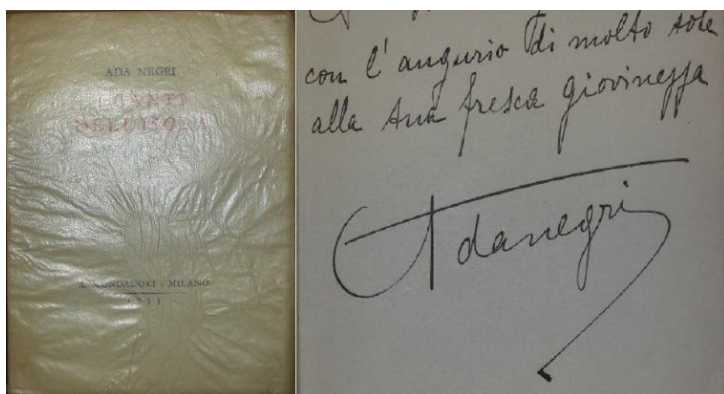 ADA NEGRI
I CANTI
DELL'ISOLA
A. MONDADORI - MILANO
con l'augurio di molto sole
alla sua fresca giovinezza
Adanegri